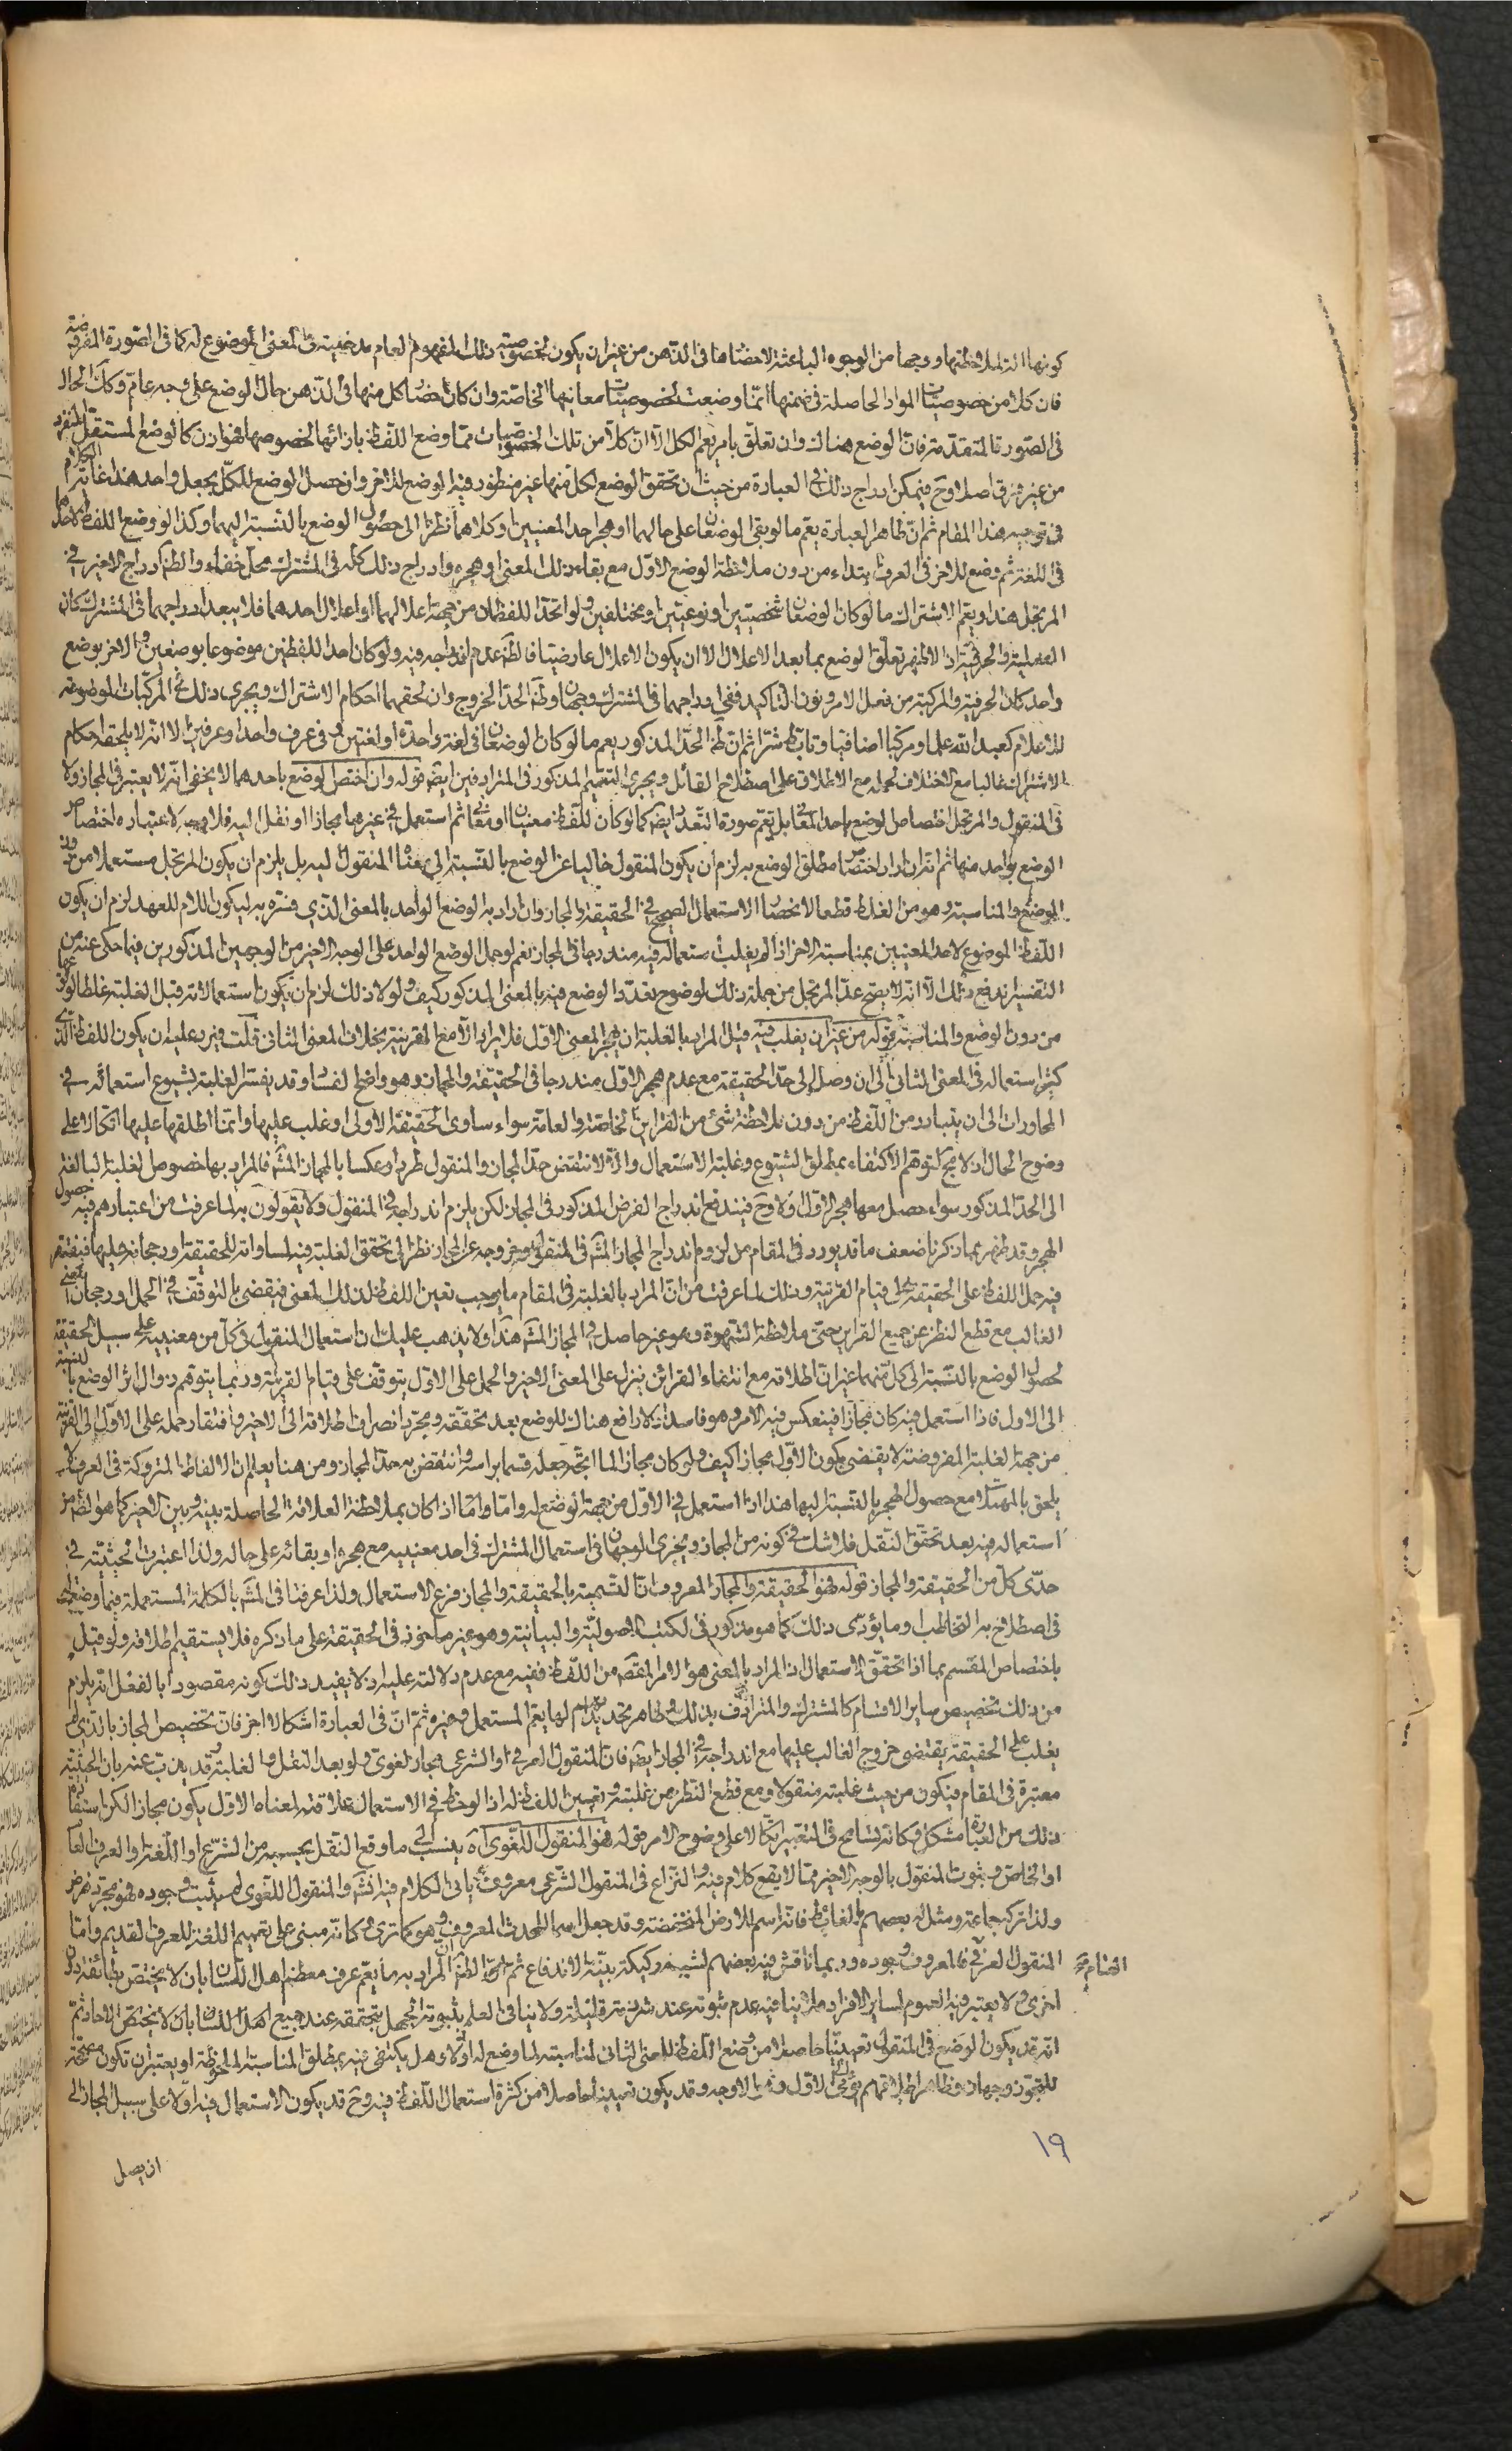 كونها الة لملاحظتها ووجها من الوجوه الباعثة لاحضارها فى الذهن من غير ان يكون لخصوصية ذلك المفهوم العام مدخلية فى المعنى الموضوع له كما فى الصورة المفروضة
فان كلا من خصوصيات المواد الحاصلة فى ضمنها انما وضعت لخصوصيات معانيها الخاصة وان كان احضار كل منها فى الذهن حال الوضع على وجه عام وكان الحال
فى الصورة المتقدمة فان الوضع هناك وان تعلق بامر يعم الكل الا ان كلا من تلك الخصوصيات مما وضع اللفظ بازائها لخصوصها فهو اذن كالوضع المستقل المنفرد
من غير فرق اصلا وح فيمكن ادراج ذلك فى العبارة من حيث ان تحقق الوضع لكل منها غير منظور فيه الوضع للاخر وان حصل الوضع للكل بجعل واحد هذا غاية الكلام
فى توجيه هذا المقام ثم ان ظاهر العبارة يعم ما لو بقى الوضعان على حالهما او هجر احد المعنيين او كلاهما نظرا الى حصول الوضع بالنسبة اليهما وكذا لو وضع اللفظ لاحدهما
فى اللغة ثم وضع للاخر فى العرف ابتداء من دون ملاحظة الوضع الاول مع بقاء ذلك المعنى او هجره وادراج ذلك كله فى المشترك محل خفاء والظ ادراج الاخير فى
المرتجل هذا ويعم الاشتراك ما لو كان الوضعان شخصيين او نوعيين او مختلفين ولو اتحد اللفظان من جهة اعلالهما او اعلال احدهما فلا يبعد ادراجهما فى المشترك كان
الفعلية والحرفية اذ الاظهر تعلق الوضع بما بعد الاعلال الا ان يكون الاعلال عارضيا فالظ عدم اندراجه فيه ولو كان احد اللفظين موضوعا بوضعين والاخر بوضع
واحد كان الحرفية والمركبة من فعل الامر ونون التاكيد ففى ادراجهما فى المشترك وجهان وظ الحد الخروج وان لحقهما احكام الاشتراك ويجرى ذلك فى المركبات الموضوعة
للاعلام كعبد الله علما ومركبا اضافيا وتابط شرا ثم ان ظ الحد المذكور يعم ما لو كان الوضعان فى لغة واحدة او لغتين وفى عرف واحد او عرفين الا انه لا يلحقه احكام
الاشتراك غالبا مع الاختلاف لحمله مع الاطلاق على اصطلاح القائل ويجرى التعميم المذكور فى المترادفين ايضا قوله وان اختص الوضع باحدهما لا يخفى انه لا يعتبر فى المجاز ولا
فى المنقول والمرتجل اختصاص الوضع باحد المعانى بل يعم صورة التعدد ايضا كما لو كان للفظ معنيان او معان ثم استعمل فى غيرهما مجازا او نقل اليه فلا وجه لاعتباره اختصاص
الوضع بواحد منها ثم انه ان اراد اختصاص مطلق الوضع به لزم ان يكون المنقول خاليا عن الوضع بالنسبة الى معناه المنقول اليه بل يلزم ان يكون المرتجل مستعملا من دون
الوضع والمناسبة وهو من الغلط قطعا لانحصار الاستعمال الصحيح فى الحقيقة والمجاز وان اراد به الوضع الواحد بالمعنى الذى فسره به ليكون اللام للعهد لزم ان يكون
اللفظ الموضوع لاحد المعنيين بمناسبة الاخر اذا لم يغلب استعماله فيه مندرجا فى المجاز نعم لو حمل الوضع الواحد على الوجه الاخير من الوجهين المذكورين فيما حكى عنه من
التفسير اندفع ذلك الا انه لا يصح عد المرتجل من جملة ذلك لوضوح تعدد الوضع فيه بالمعنى المذكور كيف ولولا ذلك لزم ان يكون استعمالاته قبل الغلبة غلطا لوقوعها
من دون الوضع والمناسبة قوله من غير ان يغلب فيه قيل المراد بالغلبة ان يهجر المعنى الاول فلا يراد الا مع القرينة بخلاف المعنى الثانى قلت فيرد عليه ان يكون اللفظ الذى
كثر استعماله فى المعنى الثانى الى ان وصل الى حد الحقيقة مع عدم هجر الاول مندرجا فى الحقيقة والمجاز وهو واضح الفساد وقد يفسر الغلبة بشيوع استعماله فى
المحاورات الى ان يتبادر من اللفظ من دون ملاحظة شئ من القراين الخاصة والعامة سواء ساوى الحقيقة الاولى او غلب عليها وانما اطلقها عليها اتكالا على
وضوح الحال اذ لا مجال لتوهم الاكتفاء بمطلق الشيوع وغلبة الاستعمال والا لانتقض حد المجاز والمنقول طردا وعكسا بالمجاز المش فالمراد بها خصوص الغلبة البالغة
الى الحد المذكور سواء حصل معها هجر الاول اولا وح فيندفع اندراج الفرض المذكور فى المجاز لكن يلزم اندراجه فى المنقول ولا يقولون به لما عرفت من اعتبارهم فيه حصول
الهجر وقد ظهر بما ذكرنا ضعف ما قد يورد فى المقام من لزوم اندراج المجاز المش فى المنقول وخروجه عن المجاز نظرا الى تحقق الغلبة فيه لمساواته للحقيقة او رجحانه عليها فيفتقر
فيه حمل اللفظ على الحقيقة الى قيام القرينة وذلك لما عرفت من ان المراد بالغلبة فى المقام ما يوجب تعين اللفظ لذلك المعنى فيقضى بالتوقف فى الحمل او رجحان المعنى
الغالب مع قطع النظر عن جميع القراين حتى ملاحظة الشهرة وهو غير حاصل فى المجاز المش هذا ولا يذهب عليك ان استعمال المنقول فى كل من معنييه على سبيل الحقيقة
لحصول الوضع بالنسبة الى كل منهما غير ان اطلاقه مع انتفاء القرائن ينزله على المعنى الاخير والحمل على الاول يتوقف على قيام القرينة وربما يتوهم زوال اثر الوضع بالنسبة
الى الاول فاذا استعمل فيه كان مجازا فينعكس فيه الامر وهو فاسد اذ لا رافع هناك للوضع بعد تحققه ومجرد انصراف اطلاقه الى الاخير وافتقار حمله على الاول الى القرينة
من جهة الغلبة المفروضة لا يقتضى بكون الاول مجازا كيف ولو كان مجازا لما اتجه جعله قسما براسه وانتقض به حد المجاز ومن هنا يعلم ان الالفاظ المتروكة فى العرف لا
يلحق بالمهملات مع حصول الهجر بالنسبة اليها هذا اذا استعمل فى الاول من جهة الوضع له واما اذا كان بملاحظة العلاقة الحاصلة بينه وبين الاخير كما هو الظ من
استعماله فيه بعد تحقق النقل فلا شك فى كونه من المجاز ويجرى الوجهان فى استعمال المشترك فى احد معنييه مع هجره او بقائه على حاله ولذا اعتبرت الحيثية فى
حدى كل من الحقيقة والمجاز قوله فهو الحقيقة والمجاز المعروف ان التسمية بالحقيقة والمجاز فرع الاستعمال ولذا عرفنا فى المش بالكلمة المستعملة فيما وضعت له
فى اصطلاح به التخاطب وما يؤدى ذلك كما هو مذكور فى الكتب الاصولية والبيانية وهو غير ماخوذ فى الحقيقة على ما ذكره فلا يستقيم اطلاقه ولو قيل
باختصاص المقسم بما اذا تحقق الاستعمال اذ المراد بالمعنى هو الامر المقصود من اللفظ ففيه مع عدم دلالته عليه اذ لا يفيد ذلك كونه مقصودا بالفعل انه يلزم
من ذلك تخصيص ساير الاقسام كالمشترك والمترادف بذلك وظاهر تحديدهم لها يعم المستعمل وغيره ثم ان فى العبارة اشكالا اخر فان تخصيص المجاز بالذى لم
يغلب على الحقيقة يقتضى خروج الغالب عليها مع اندراجه فى المجاز ايضا فان المنقول العرفى او الشرعى مجاز لغوى ولو بعد النقل والغلبة وقد يذب عنه بان الحيثية
معتبرة فى المقام فيكون من حيث غلبته منقولا ومع قطع النظر من غلبته وتعيين اللفظ له اذا لوحظ فى الاستعمال علاقته لمعناه الاول يكون مجازا لكن استفادة
ذلك من العبارة مشكل وكانه تسامح فى التعبير اتكالا على وضوح الامر قوله فهو المنقول اللغوى اه ينسب الى ما وقع النقل بحسبه من الشرع او اللغة او العرف العام
او الخاص وثبوت المنقول بالوجه الاخير مما لا يقع كلام فيه والنزاع فى المنقول الشرعى معروف ياتى الكلام فيه انش والمنقول اللغوى لم يثبت وجوده فهو مجرد فرض
ولذا تركه جماعة ومثل له بعضهم بالغائط فانه اسم للارض المنخفضة وقد جعل اسما للحدث المعروف وهو كما ترى وكانه مبنى على تعميم اللغة للعرف القديم واما
المنقول العرفى فالمعروف وجوده وربما ناقش فيه بعضهم لشبهة ركيكة بينة الاندفاع ثم الظ ان المراد به ما يعم عرف معظم اهل اللسان بان لا يختص بطائفة دون
اخرى ولا يعتبر فيه العموم لساير الافراد فلا ينافيه عدم ثبوته عند شرذمة قليلة ولا ينافى العلم بثبوته الجهل بتحققه عند جميع اهل اللسان بان لا يختص الاحاد ثم
انه قد يكون الوضع فى المنقول تعيينيا حاصلا من وضع اللفظ للمعنى الثانى لمناسبته لما وضع له اولا وهل يكتفى فيه بمطلق المناسبة الملحوظة او يعتبر ان تكون مصححة
للتجوز وجهان وظاهر اطلاقهم يومى الى الاول وهو الاوجه وقد يكون تعينيا حاصلا من كثرة استعمال اللفظ فيه وح قد يكون الاستعمال فيه اولا على سبيل المجاز الى
ان يصل
١٩